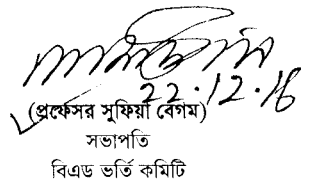 ২২.১২.১৬
(প্রফেসর সুফিয়া বেগম)
সভাপতি
বিএড ভর্তি কমিটি